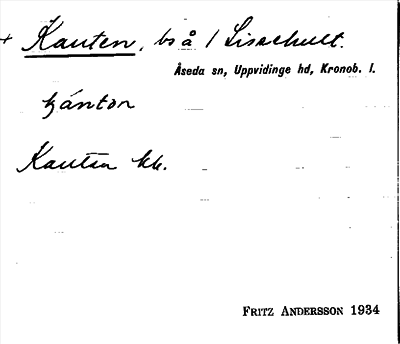 + Kanten, bs å 1 Lissehult.
Åseda sn, Uppvidinge hd, Kronob. l.
kánton
Kanten kk.
FRITZ ANDERSSON 1934